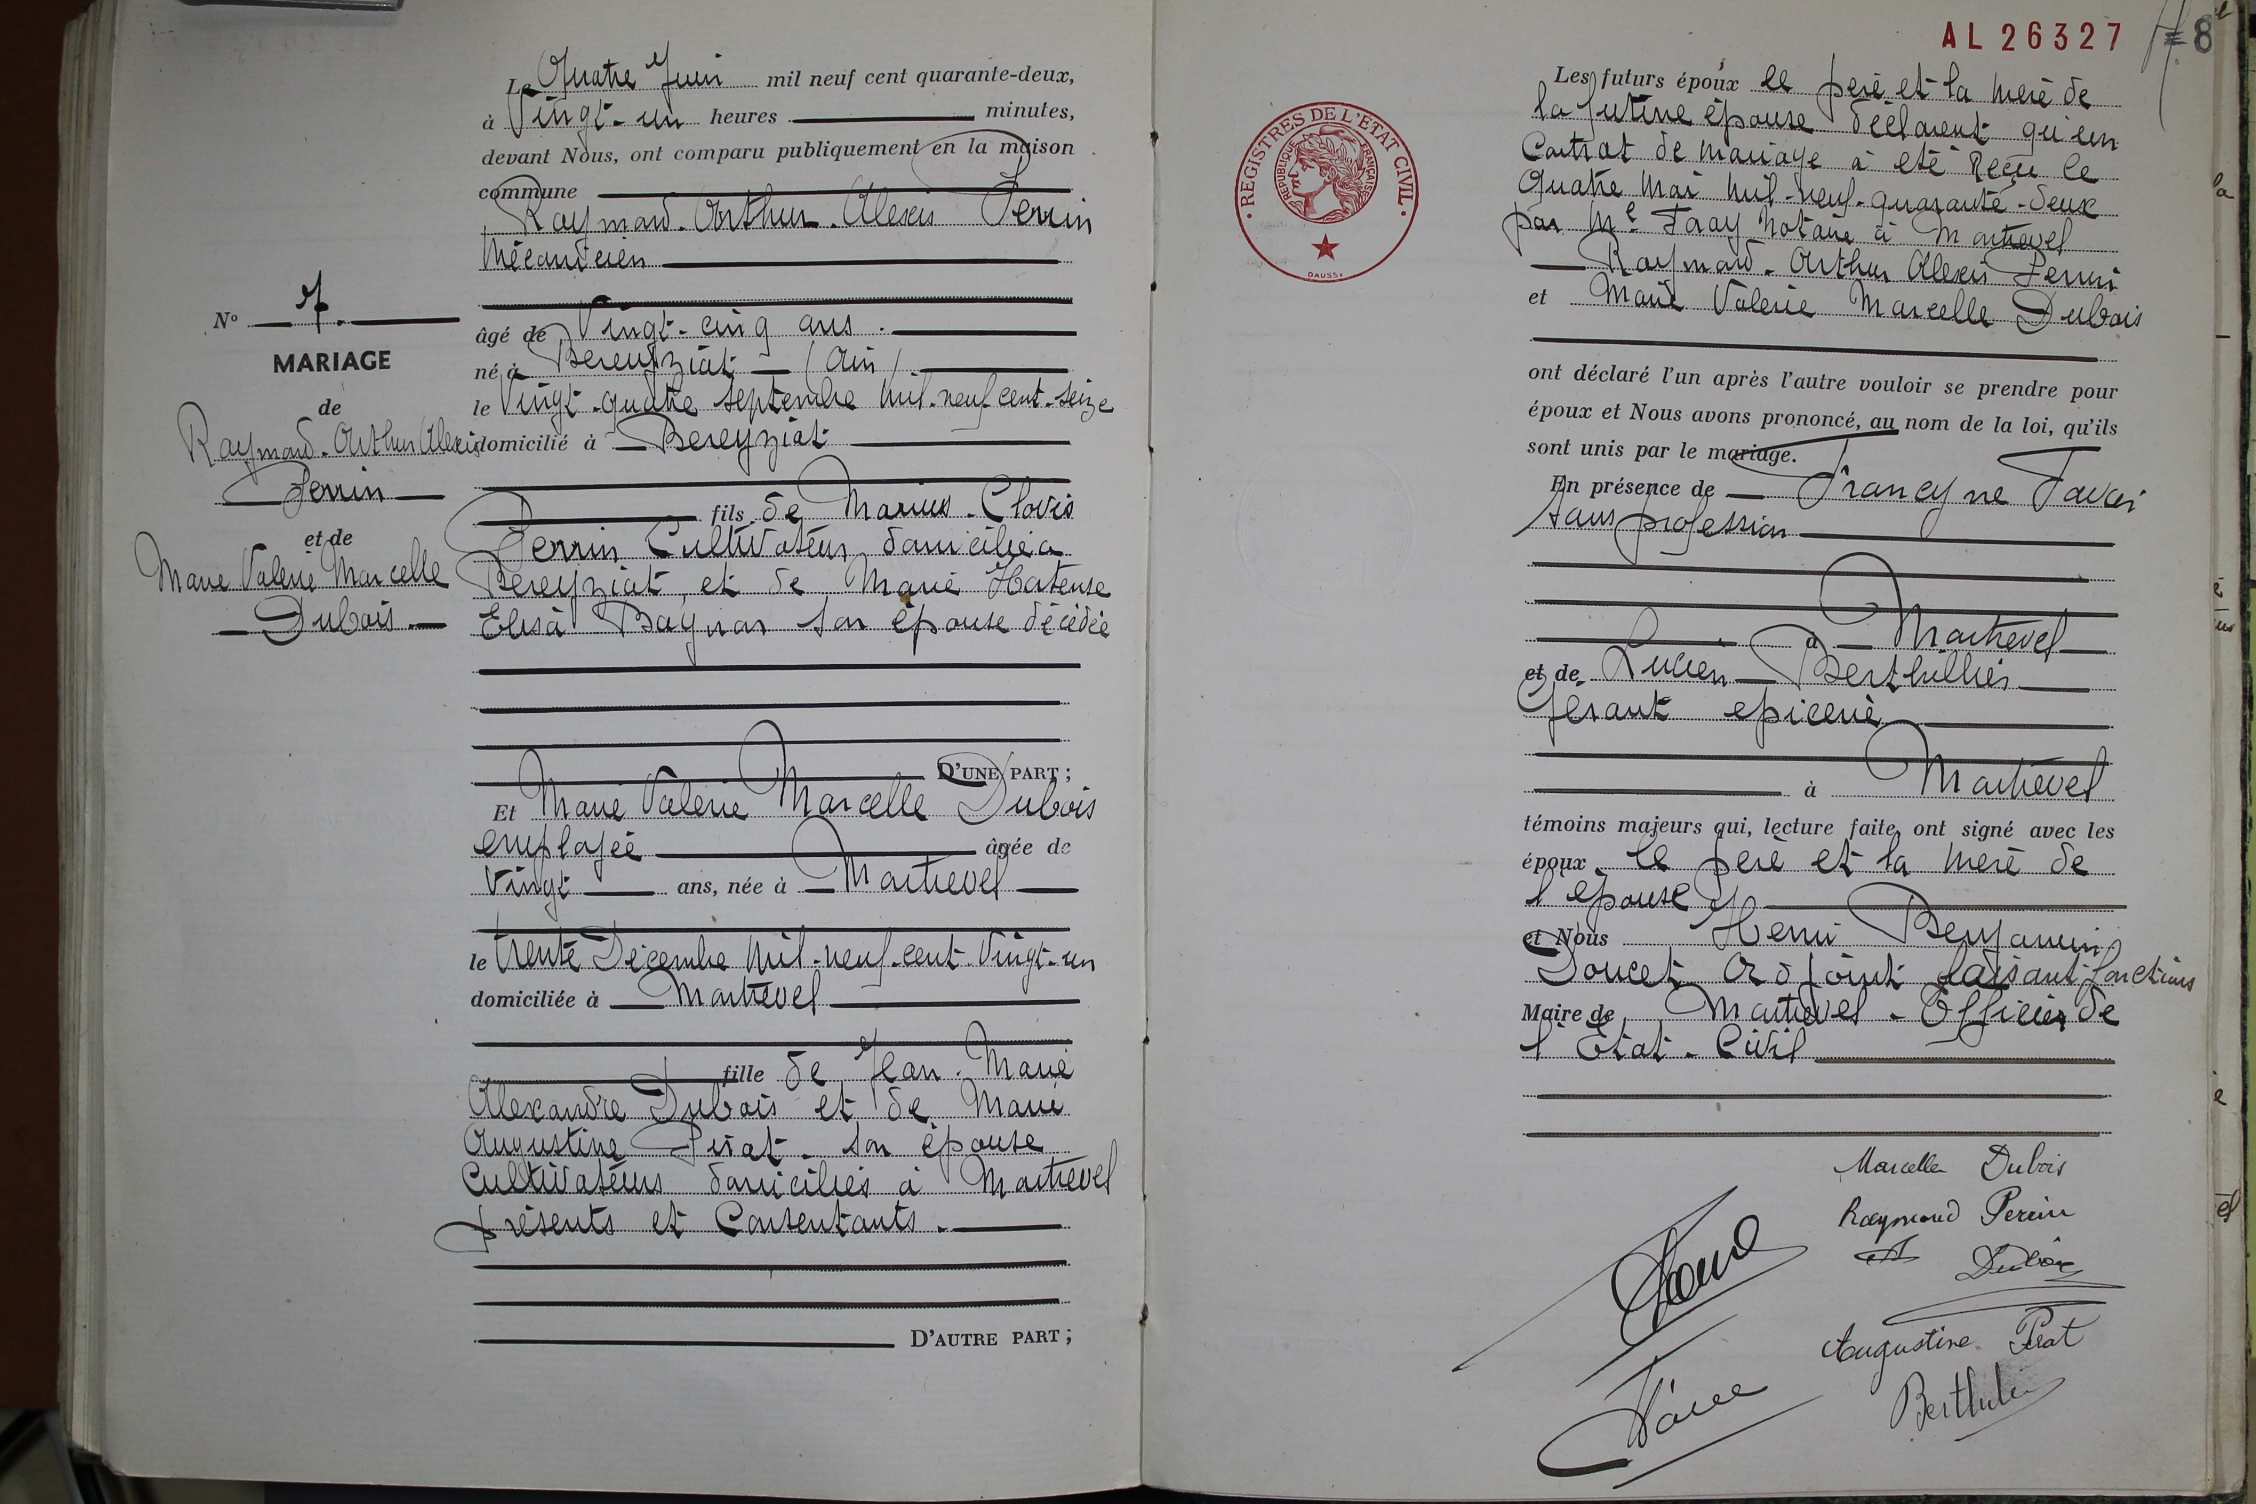 Le Quatre Juin mil neuf cent quarante-deux,
à Vingt-un heures minutes,
devant Nous, ont comparu publiquement en la maison
commune
Raymond-Arthur-Alexis Perrin
Mécanicien
âgé de Vingt-cinq ans.
né à Bereyziat (Ain)
le Vingt-quatre septembre mil-neuf cent-seize
domicilié à Bereyziat
fils de Marius-Clovis
Perrin Cultivateur domicilié à
Bereyziat, et de Marie Hortense
Elisa son épouse décédée
D'UNE PART ;
Et Marie Valerie Marcelle Dubois
employée âgée de
Vingt ans, née à Montrevel
le trente Decembre mil-neuf-cent-Vingt-un
domiciliée à Montrevel
fille de Jean-Marie
Alexandre Dubois et de Marie
Augustine Perat son épouse
Cultivateurs domiciliés à Montrevel
présents et Consentants.
D'AUTRE PART ;
No 7.
MARIAGE
de
Raymond-Arthur Alexis
Perrin
et de
Marie Valerie Marcelle
Dubois
AL 26327
8
REGISTRES DE L'ETAT CIVIL
REPUBLIQUE FRANÇAISE
DAUSSY
Les futurs époux le père et la mère de
la future épouse déclarent qu'un
Contrat de mariage à été Reçu le
Quatre Mai mil-neuf-quarante-deux
par Me Notaire à Montrevel
Raymond-Arthur Alexis Perrin
et Marie Valerie Marcelle Dubois
ont déclaré l'un après l'autre vouloir se prendre pour
époux et Nous avons prononcé, au nom de la loi, qu'ils
sont unis par le mariage.
En présence de Francyne
sans profession
à Montrevel
et de Lucien Berthillier
Gérant epicerie
à Montrevel
témoins majeurs qui, lecture faite ont signé avec les
époux le père et la mère de
l'épouse
et Nous Henri Benjamin
Doucet Adjoint faisant fonctions
Maire de Montrevel - Officier de
l'Etat-Civil
Marcelle Dubois
Raymond Perrin
Dubois
Augustine Perat